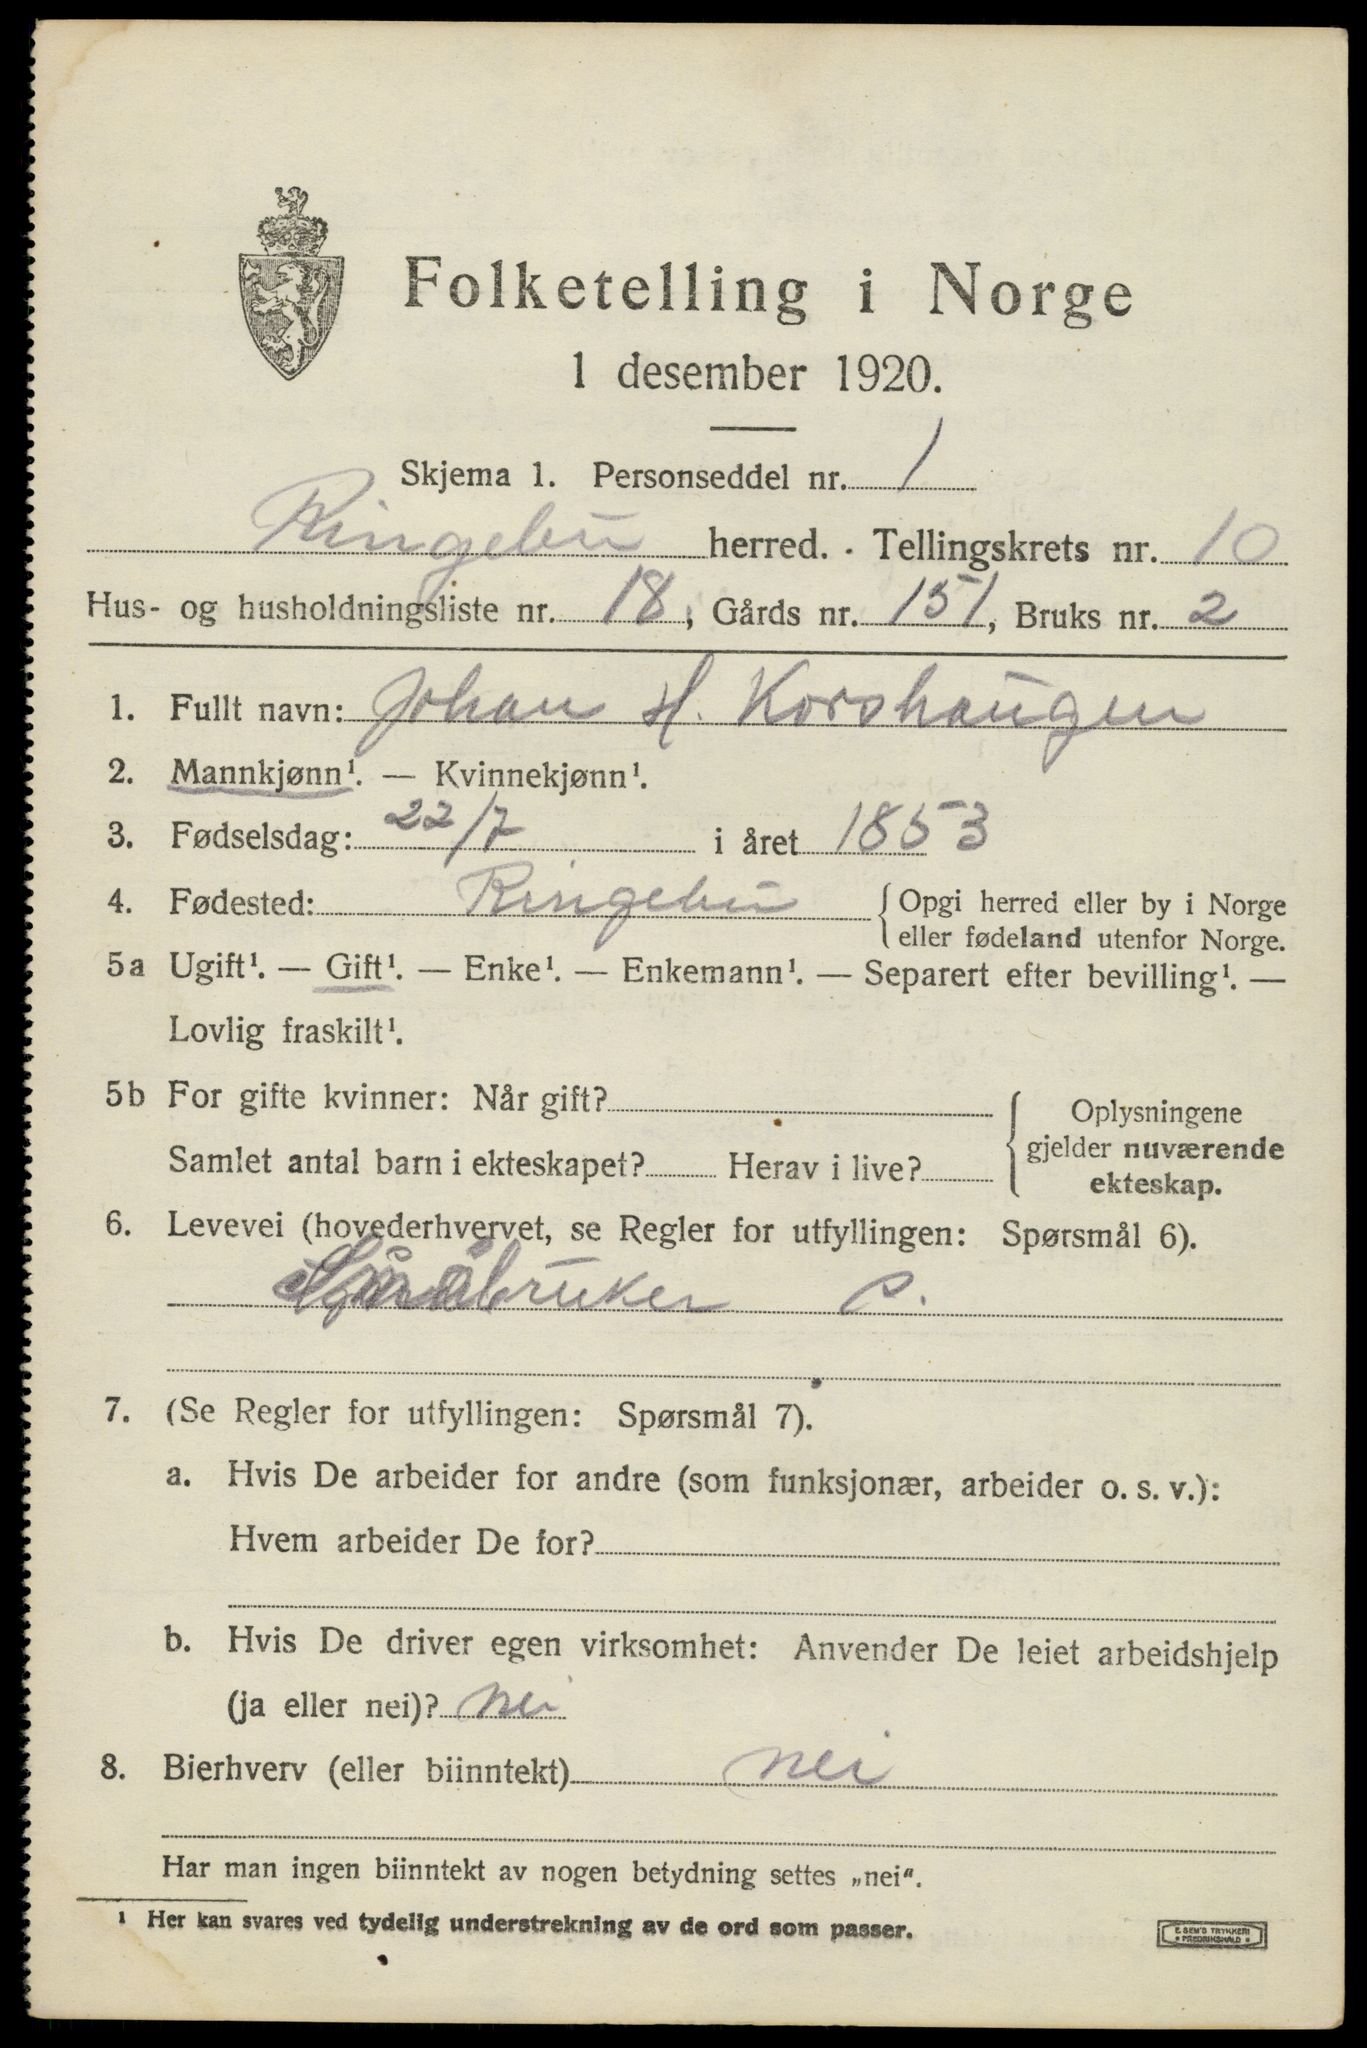 Folketelling i Norge
1 desember 1920.
Skjema 1. Personseddel nr. 1
Ringebu herred. Tellingskrets nr. 10
Hus- og husholdningsliste nr. 18, Gårds nr. 151, Bruks nr. 2
1. Fullt navn: Johan H. Korshaugen
2. Mannkjønn¹. — Kvinnekjønn¹.
3. Fødselsdag: 22/7 i året 1853
4. Fødested: Ringebu { Opgi herred eller by i Norge
eller fødeland utenfor Norge.
5a Ugift¹. — Gift¹. — Enke¹. — Enkemann¹. — Separert efter bevilling¹. —
Lovlig fraskilt¹.
5b For gifte kvinner: Når gift? { Oplysningene
gjelder nuværende
Samlet antal barn i ekteskapet? Herav i live?
ekteskap.
6. Levevei (hovederhvervet, se Regler for utfyllingen: Spørsmål 6).
Småbruker
7. (Se Regler for utfyllingen: Spørsmål 7).
a. Hvis De arbeider for andre (som funksjonær, arbeider o. s. v.):
Hvem arbeider De for?
b. Hvis De driver egen virksomhet: Anvender De leiet arbeidshjelp
(ja eller nei)? nei
8. Bierhverv (eller biinntekt) nei
Har man ingen biinntekt av nogen betydning settes „nei“.
¹ Her kan svares ved tydelig understrekning av de ord som passer.
E. SEM'S TRYKKERI
FREDRIKSHALD